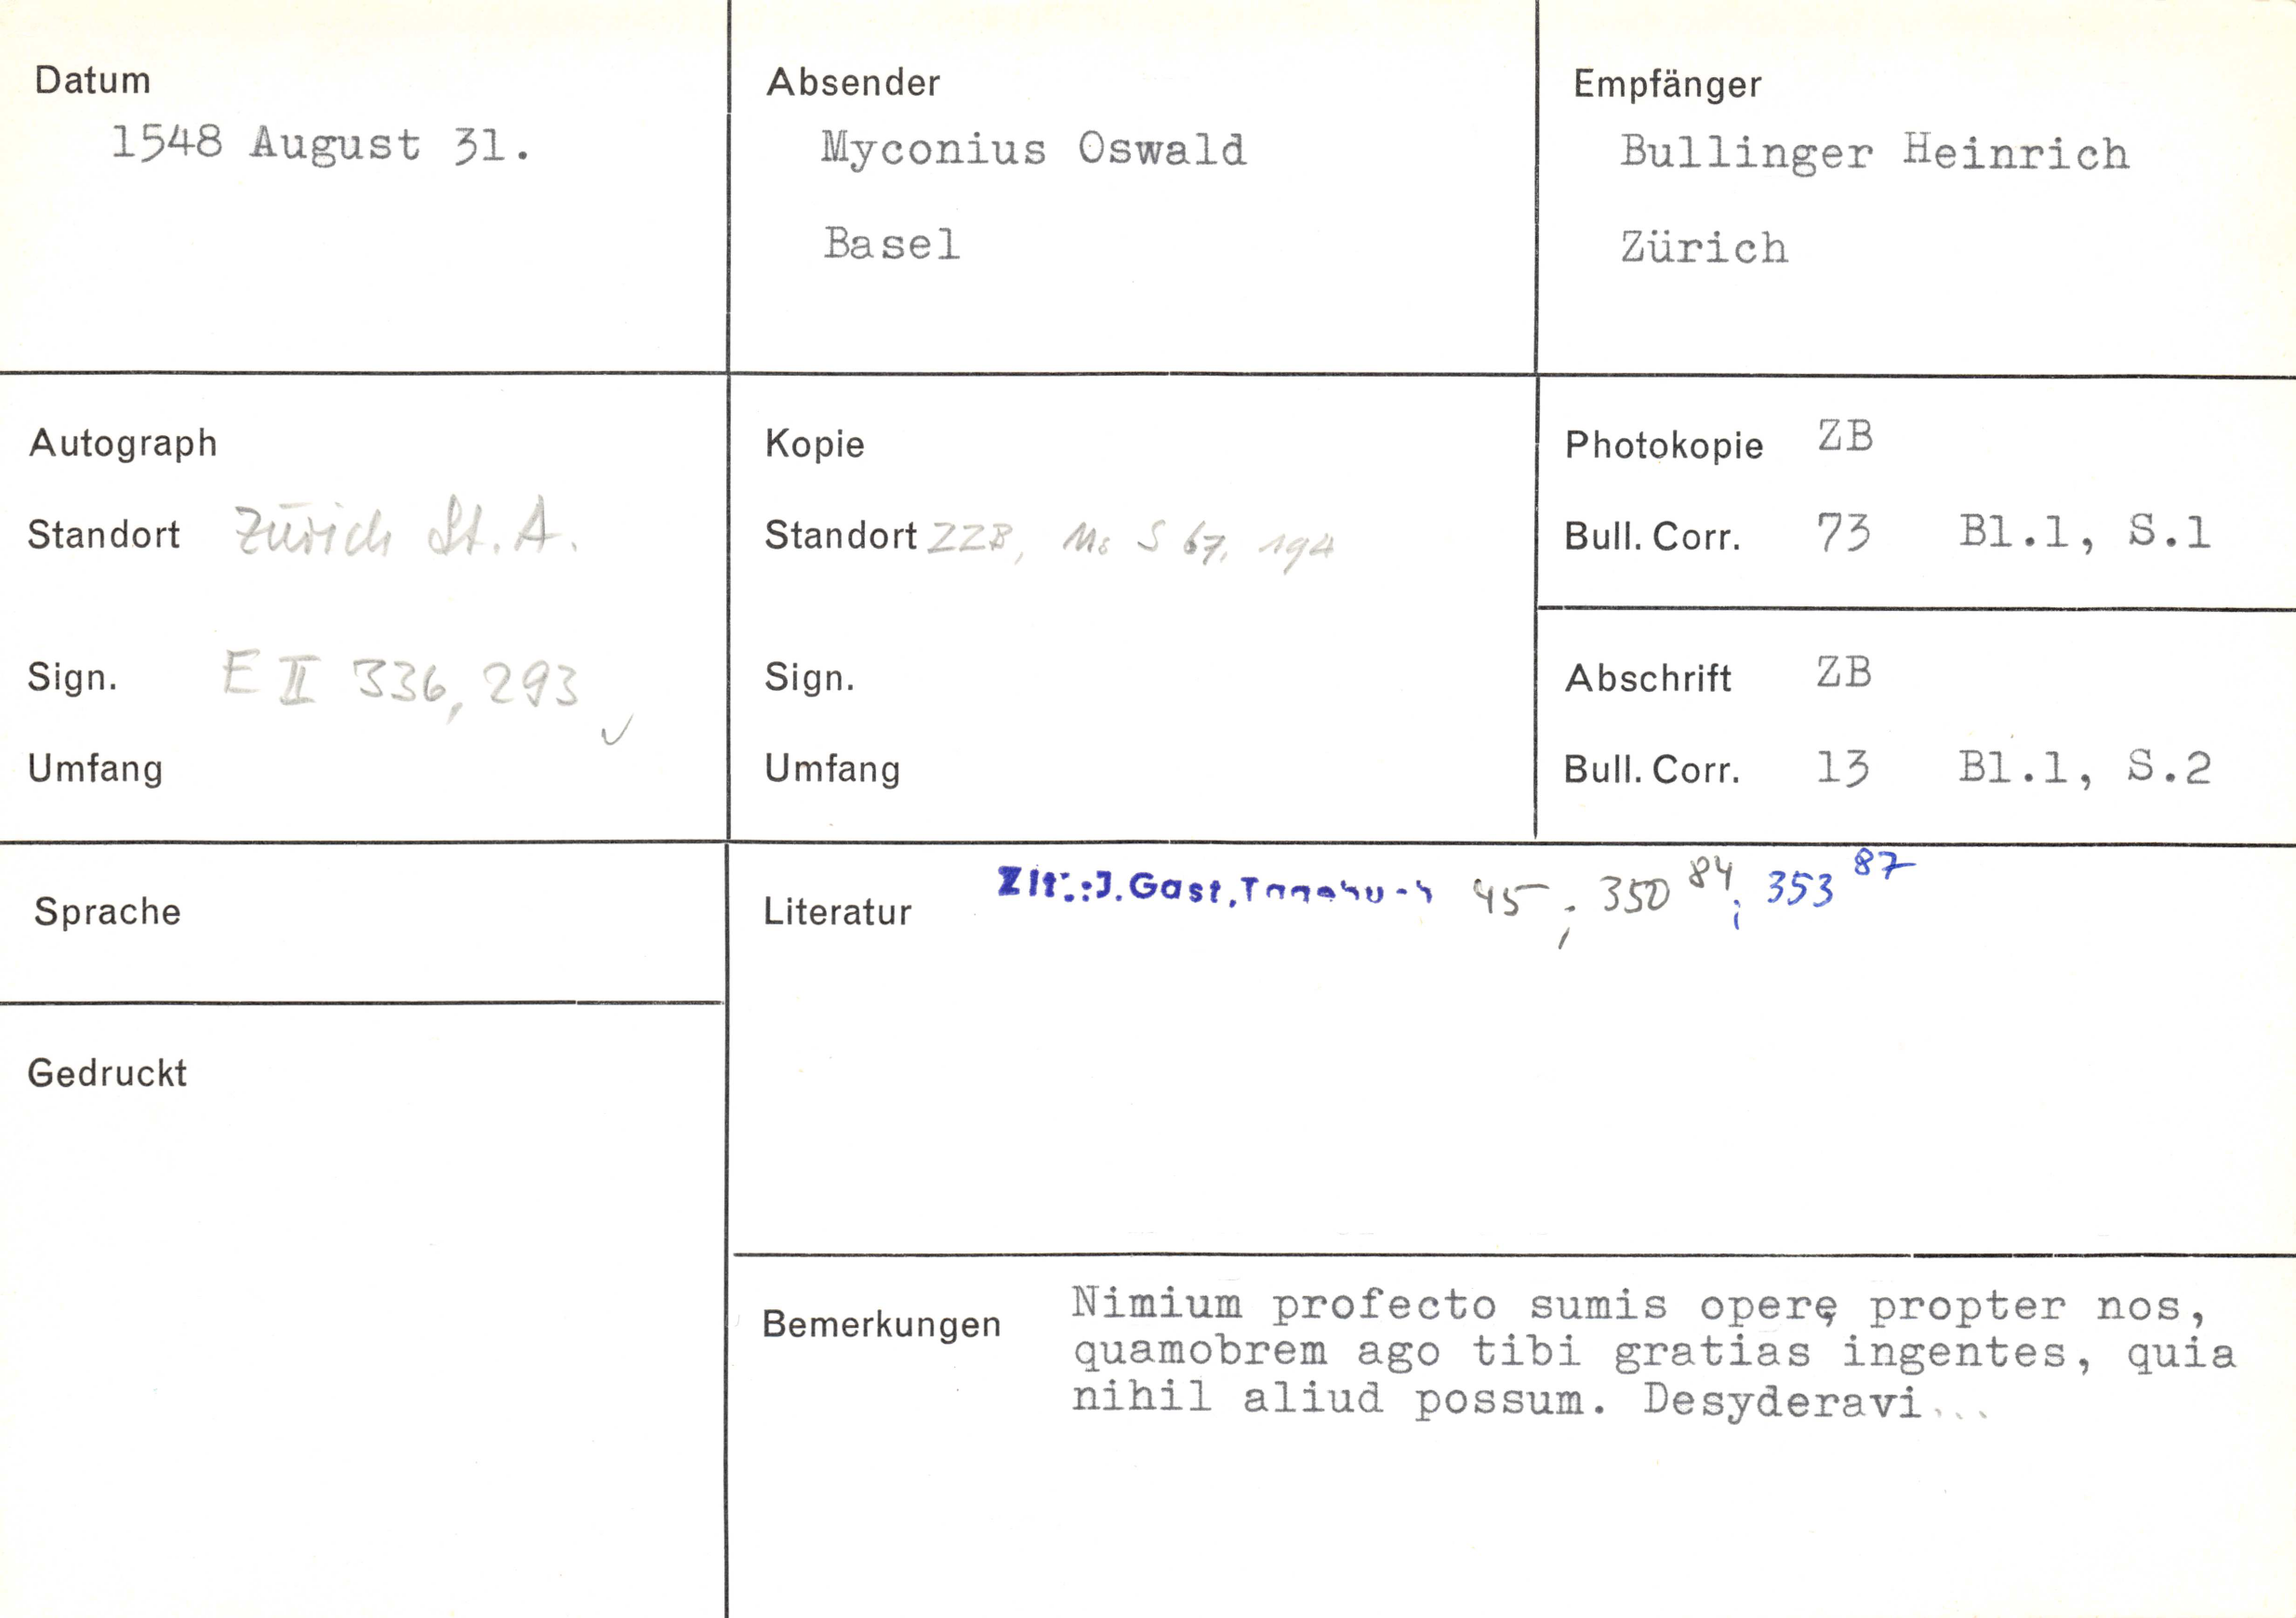 Datum
1548 August 31.
Absender
Myconius Oswald
Basel
Empfänger
Bullinger Heinrich
Zürich
Autograph
Standort Zürich St. A.
Sign. E II 336, 293 ✓
Umfang
Kopie
Standort ZZB, Ms S 67, 194
Sign.
Umfang
Photokopie ZB
Bull. Corr. 73 Bl.1, S.1
Abschrift ZB
Bull. Corr. 13 Bl.1, S.2
Sprache
Gedruckt
Literatur Zit.: J. Gast, Tagebuch 45; 350 84; 353 87
Bemerkungen Nimium profecto sumis operę propter nos,
quamobrem ago tibi gratias ingentes, quia
nihil aliud possum. Desyderavi...